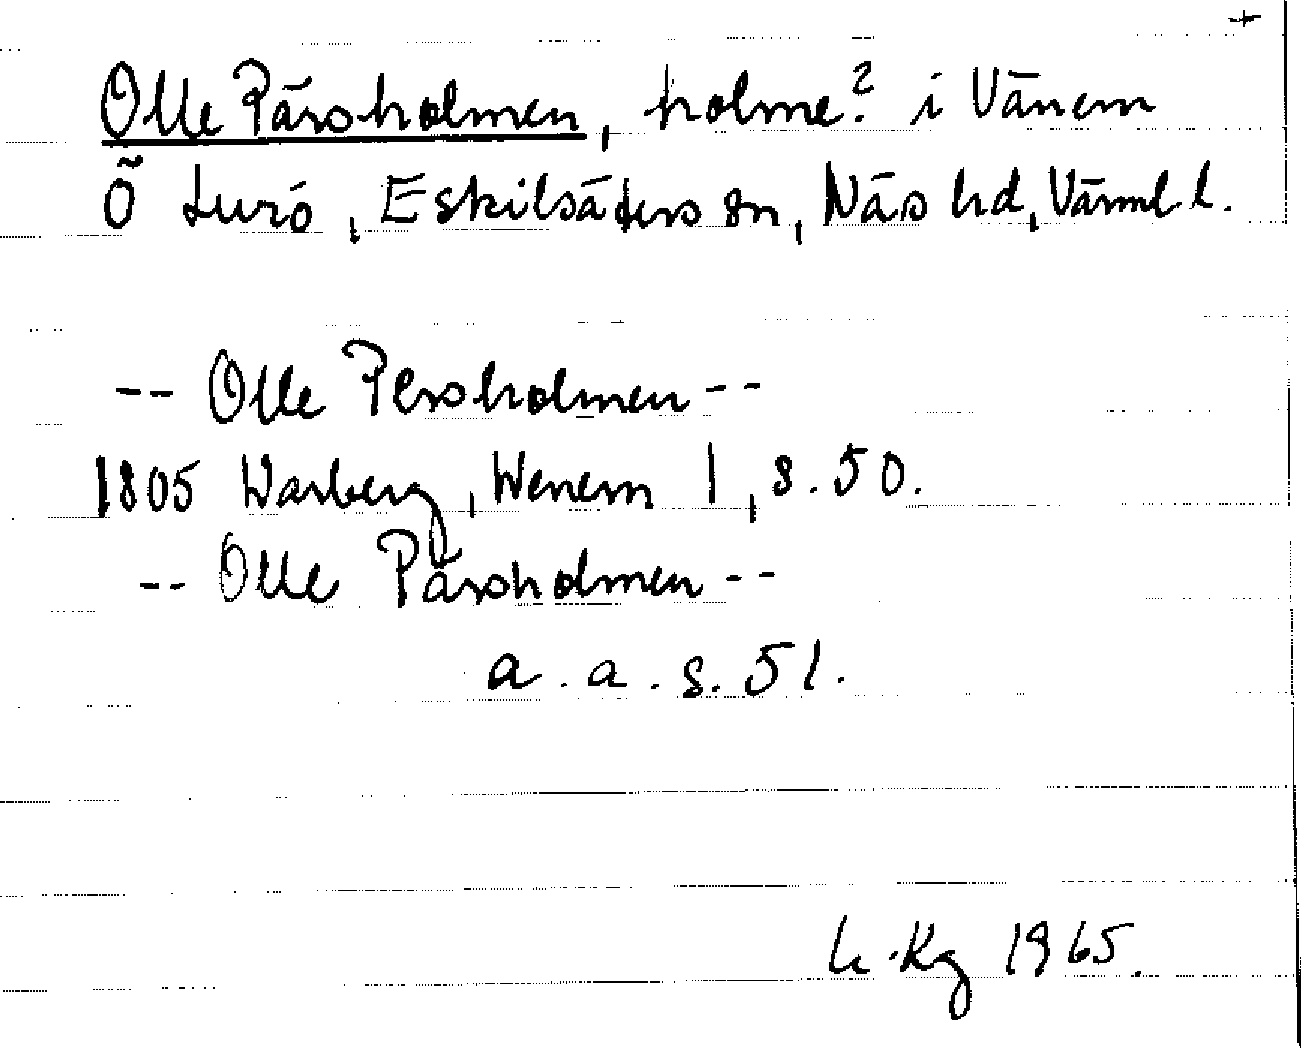 +
Olle Pärsholmen, holme? i Vänern
Ö Lurö, Eskilsäters sn, Näs hd, Värml l.
-- Olle Persholmen --
1805 Warberg, Wenern 1, s. 50.
-- Olle Pärsholmen --
a. a. s. 51.
Kg 1965.